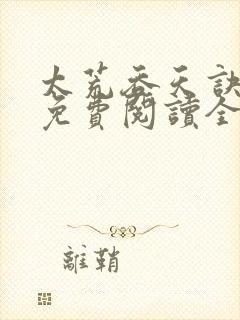 太荒吞天訣
免費閱讀全
離鞘